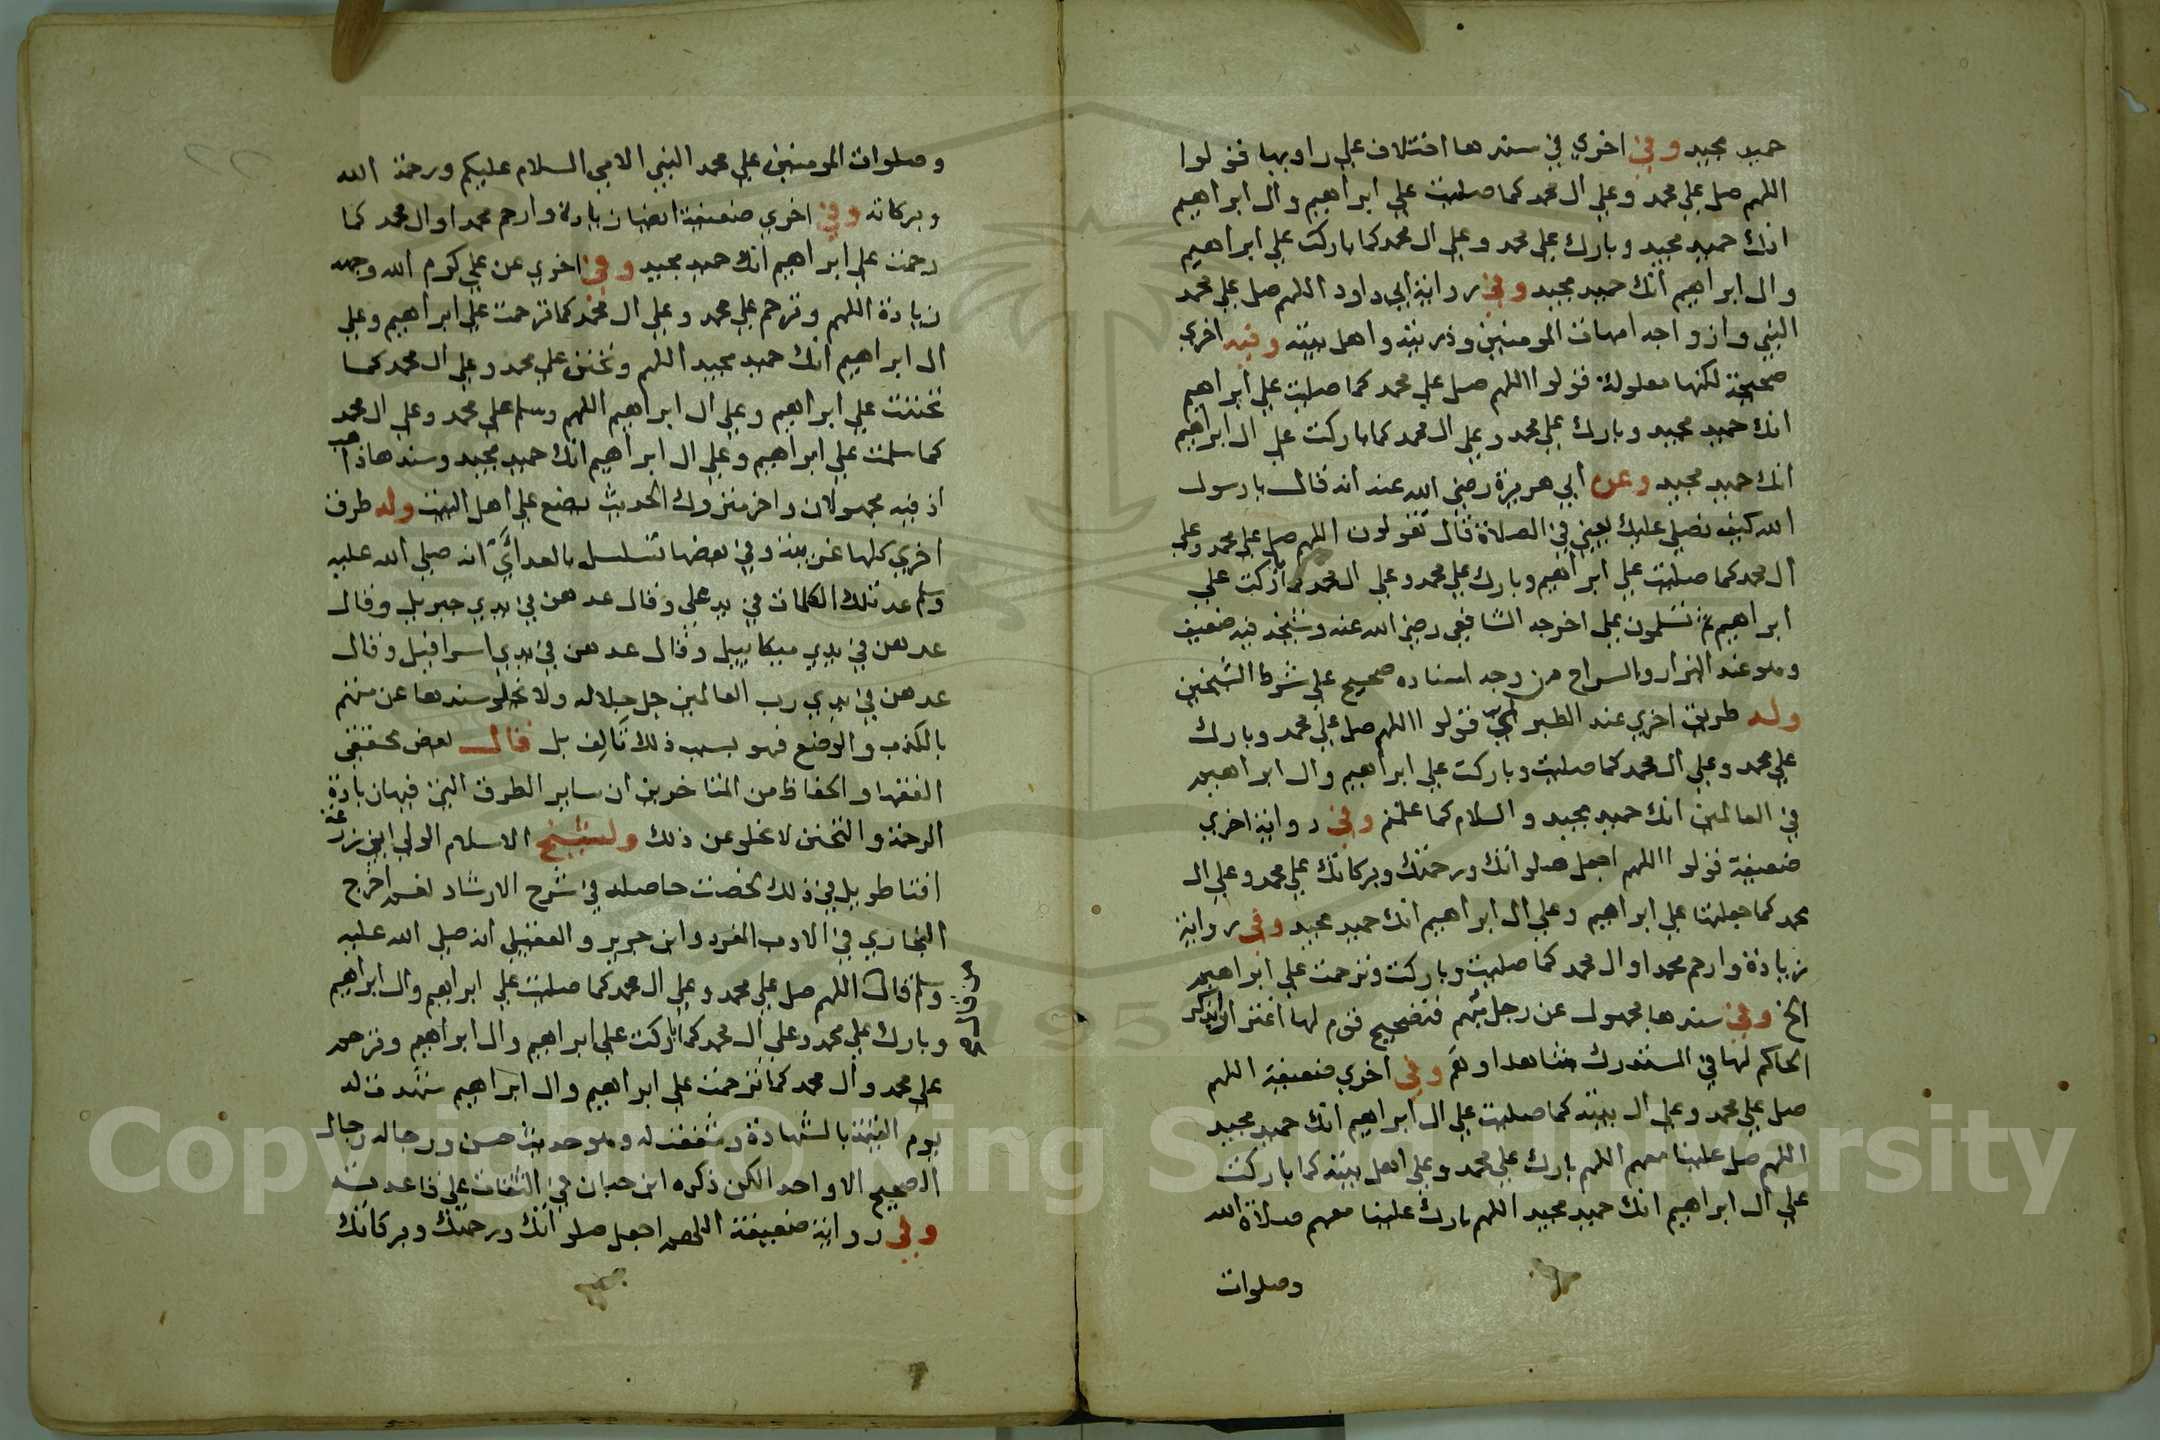 حميد مجيد وفي اخري في سندها اختلاف علي راويها قولوا
اللهم صل علي محمد وعلي ال محمد كما صليت علي ابراهيم وال ابراهيم
انك حميد مجيد وبارك علي محمد وعلي ال محمد كما باركت علي ابراهيم
وال ابراهيم انك حميد مجيد وفي رواية ابي داود اللهم صل علي محمد
النبي وازواجه امهات المومنين وذريته واهل بيته وفيه اخري
صحيحة لكنها معلولة قولوا اللهم صل علي محمد كما صليت علي ابراهيم
انك حميد مجيد وبارك علي محمد وعلي ال محمد كما باركت علي ال ابراهيم
انك حميد مجيد وعن ابي هريرة رضي الله عنه انه قال يا رسول
الله كيف نصلي عليك يعني في الصلاة قال تقولون اللهم صل علي محمد وعلي
ال محمد كما صليت علي ابراهيم وبارك علي محمد وعلي ال محمد كما باركت علي
ابراهيم ثم تسلمون علي اخرجه الشافعي رضي الله عنه وشيخه فيه ضعيف
وهو عند البزار والسراج من وجه اسناده صحيح علي شرط الشيخين
وله طريق اخري عند الطبراني قولوا اللهم صل علي محمد وبارك
علي محمد وعلي ال محمد كما صليت وباركت علي ابراهيم وال ابراهيم
في العالمين انك حميد مجيد والسلام كما علمتم وفي رواية اخري
ضعيفة قولوا اللهم اجعل صلواتك ورحمتك وبركاتك علي محمد وعلي ال
محمد كما جعلتها علي ابراهيم وعلي ال ابراهيم انك حميد مجيد وفي رواية
زيادة وارحم محمدا وال محمد كما صليت وباركت وترحمت علي ابراهيم
الخ وفي سندها مجهول عن رجل مبهم فتصحيح قوم لها اغترارا بذكر
الحاكم لها في المستدرك شاهدا وهم وفي اخري ضعيفة اللهم
صل علي محمد وعلي ال بيته كما صليت علي ال ابراهيم انك حميد مجيد
اللهم صل علينا معهم اللهم بارك علي محمد وعلي اهل بيته كما باركت
علي ال ابراهيم انك حميد مجيد اللهم بارك علينا معهم صلاة الله
وصلوات
وصلوات المومنين علي محمد النبي الامي السلام عليكم ورحمة الله
وبركاته وفي اخري ضعيفة ايضا زيادة وارحم محمدا وال محمد كما
رحمت علي ابراهيم انك حميد مجيد وفي اخري عن علي كرم الله وجهه
زيادة اللهم وترحم علي محمد وعلي ال محمد كما ترحمت علي ابراهيم وعلي
ال ابراهيم انك حميد مجيد اللهم وتحنن علي محمد وعلي ال محمد كما
تحننت علي ابراهيم وعلي ال ابراهيم اللهم وسلم علي محمد وعلي ال محمد
كما سلمت علي ابراهيم وعلي ال ابراهيم انك حميد مجيد وسندها ذاهب
اذ فيه مجهولان واخر متروك الحديث يضع علي اهل البيت وله طرق
اخري كلها غريبة وفي بعضها تسلسل بالعد اي انه صلي الله عليه
وسلم عد تلك الكلمات في يد علي وقال عدهن في يدي جبريل وقال
عدهن في يدي ميكاييل وقال عدهن في يدي اسرافيل وقال
عدهن في يدي رب العالمين جل جلاله ولا تخلو سندها عن متهم
بالكذب والوضع فهو بسبب ذلك تالف بل قال بعض محققي
الفقها والحفاظ من المتاخرين ان ساير الطرق التي فيها زيادة
الرحمة والتحنن لا تخلو عن ذلك ولشيخ الاسلام الولي ابي زرعة
افتا طويل في ذلك لخصت حاصله في شرح الارشاد لغسم اخرج
البخاري في الادب المفرد وابن جرير والعقيلي انه صلي الله عليه
وسلم قال اللهم صل علي محمد وعلي ال محمد كما صليت علي ابراهيم وال ابراهيم
من قال
وبارك علي محمد وعلي ال محمد كما باركت علي ابراهيم وال ابراهيم وترحم
علي محمد وال محمد كما ترحمت علي ابراهيم وال ابراهيم شهدت له
يوم القيمة بالشهادة وشفعت له وهو حديث حسن ورجاله رجال
الصحيح الا واحد الكن ذكره ابن حبان في الثقات علي قاعدته
وفي رواية ضعيفة اللهم اجعل صلواتك ورحمتك وبركاتك
Copyright © King Saud University
1957